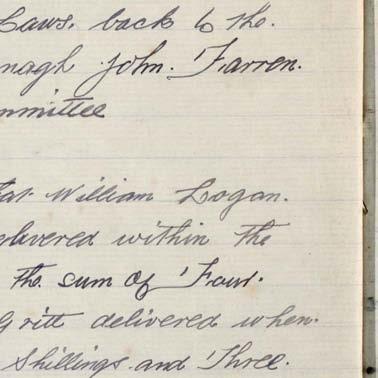 Laws. back to the.
nagh John. Farren.
mmittee
at William Logan.
elivered within the
the. sum of Four.
Gritt delivered when.
Shillings. and Three.